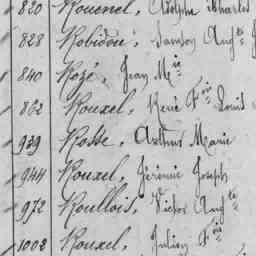 820 Rouenel, Adolphe Charles
828 Robidou, Samson Augte
840 Rozé, Jean Mie
862 Rouxel, René Fois Louis
939 Rosse, Arthur Marie
944 Rouxel, Jérémie Joseph
972 Roullois, Victor Augte
1002 Rouxel, Julien Fois